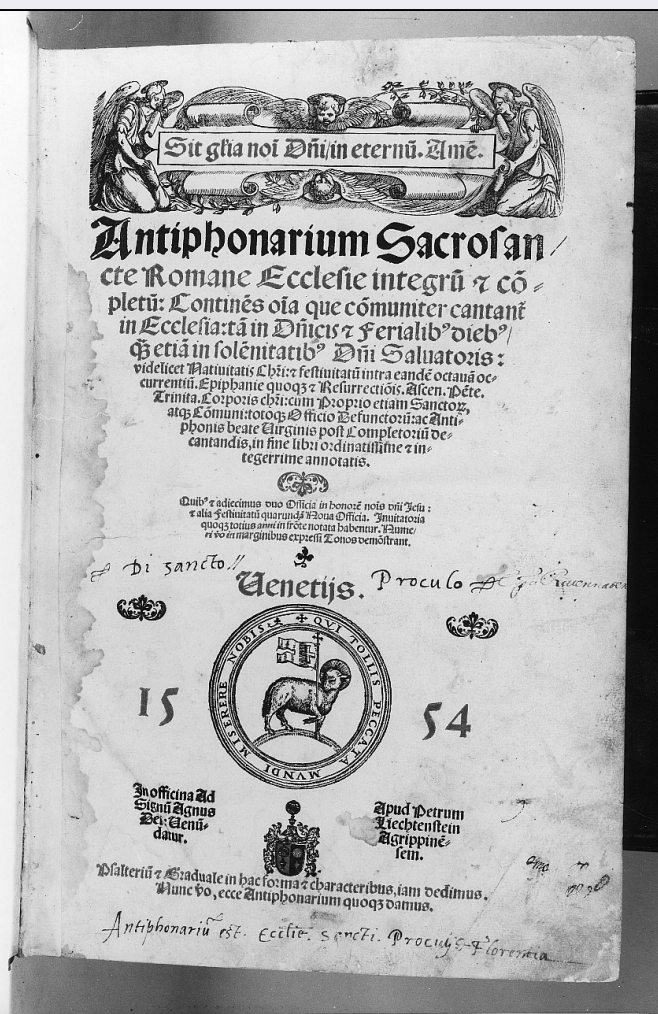 Sit gl̄ia noī Dn̄i/in eternū. Amē.
Antiphonarium Sacrosan/
cte Romane Ecclesie integrū ⁊ cō-
pletū: Continēs oīa que cōmuniter cantant̄
in Ecclesia: tā in Dn̄icis ⁊ Ferialibꝰ diebꝰ/
qꝫ̄ etiā in solēnitatibꝰ Dn̄i Saluatoris:
videlicet Natiuitatis Chr̄i: ⁊ festiuitatū intra eandē octauā oc-
currentiū. Epiphanie quoqꝫ ⁊ Resurrectiōis. Ascen. Pēte.
Trinita. Corporis chr̄i: cum Proprio etiam Sanctoꝝ,
atqꝫ Cōmuni: totoqꝫ Officio Defunctorū: ac Anti-
phonis beate Uirginis post Completoriū de-
cantandis, in fine libri ordinatissi̅me ⁊ in-
tegerrime annotatis.
Quibꝰ ⁊ adiecimus duo Officia in honorē nois dn̄i Jesu:
⁊ alia Festiuitatū quarundā Noua Officia. Inuitatoria
quoqꝫ totius anni in frōte notata habentur. Nume-
ri v̄o in marginibus expressi Tonos demōstrant.
Di sancto //
Uenetijs.
Proculo
QVI TOLLIS PECCATA MVNDI MISERERE NOBIS
15 54
In officina Ad
Signū Agnus
Dei: Uenū-
datur.
Apud Petrum
Liechtenstein
Agrippinē-
sem.
Psalteriū ⁊ Graduale in hac forma ⁊ characteribus, iam dedimus.
Nunc v̄o, ecce Antiphonarium quoqꝫ damus.
Antiphonariū est. Ecclīe. Sancti. Proculj Florentia